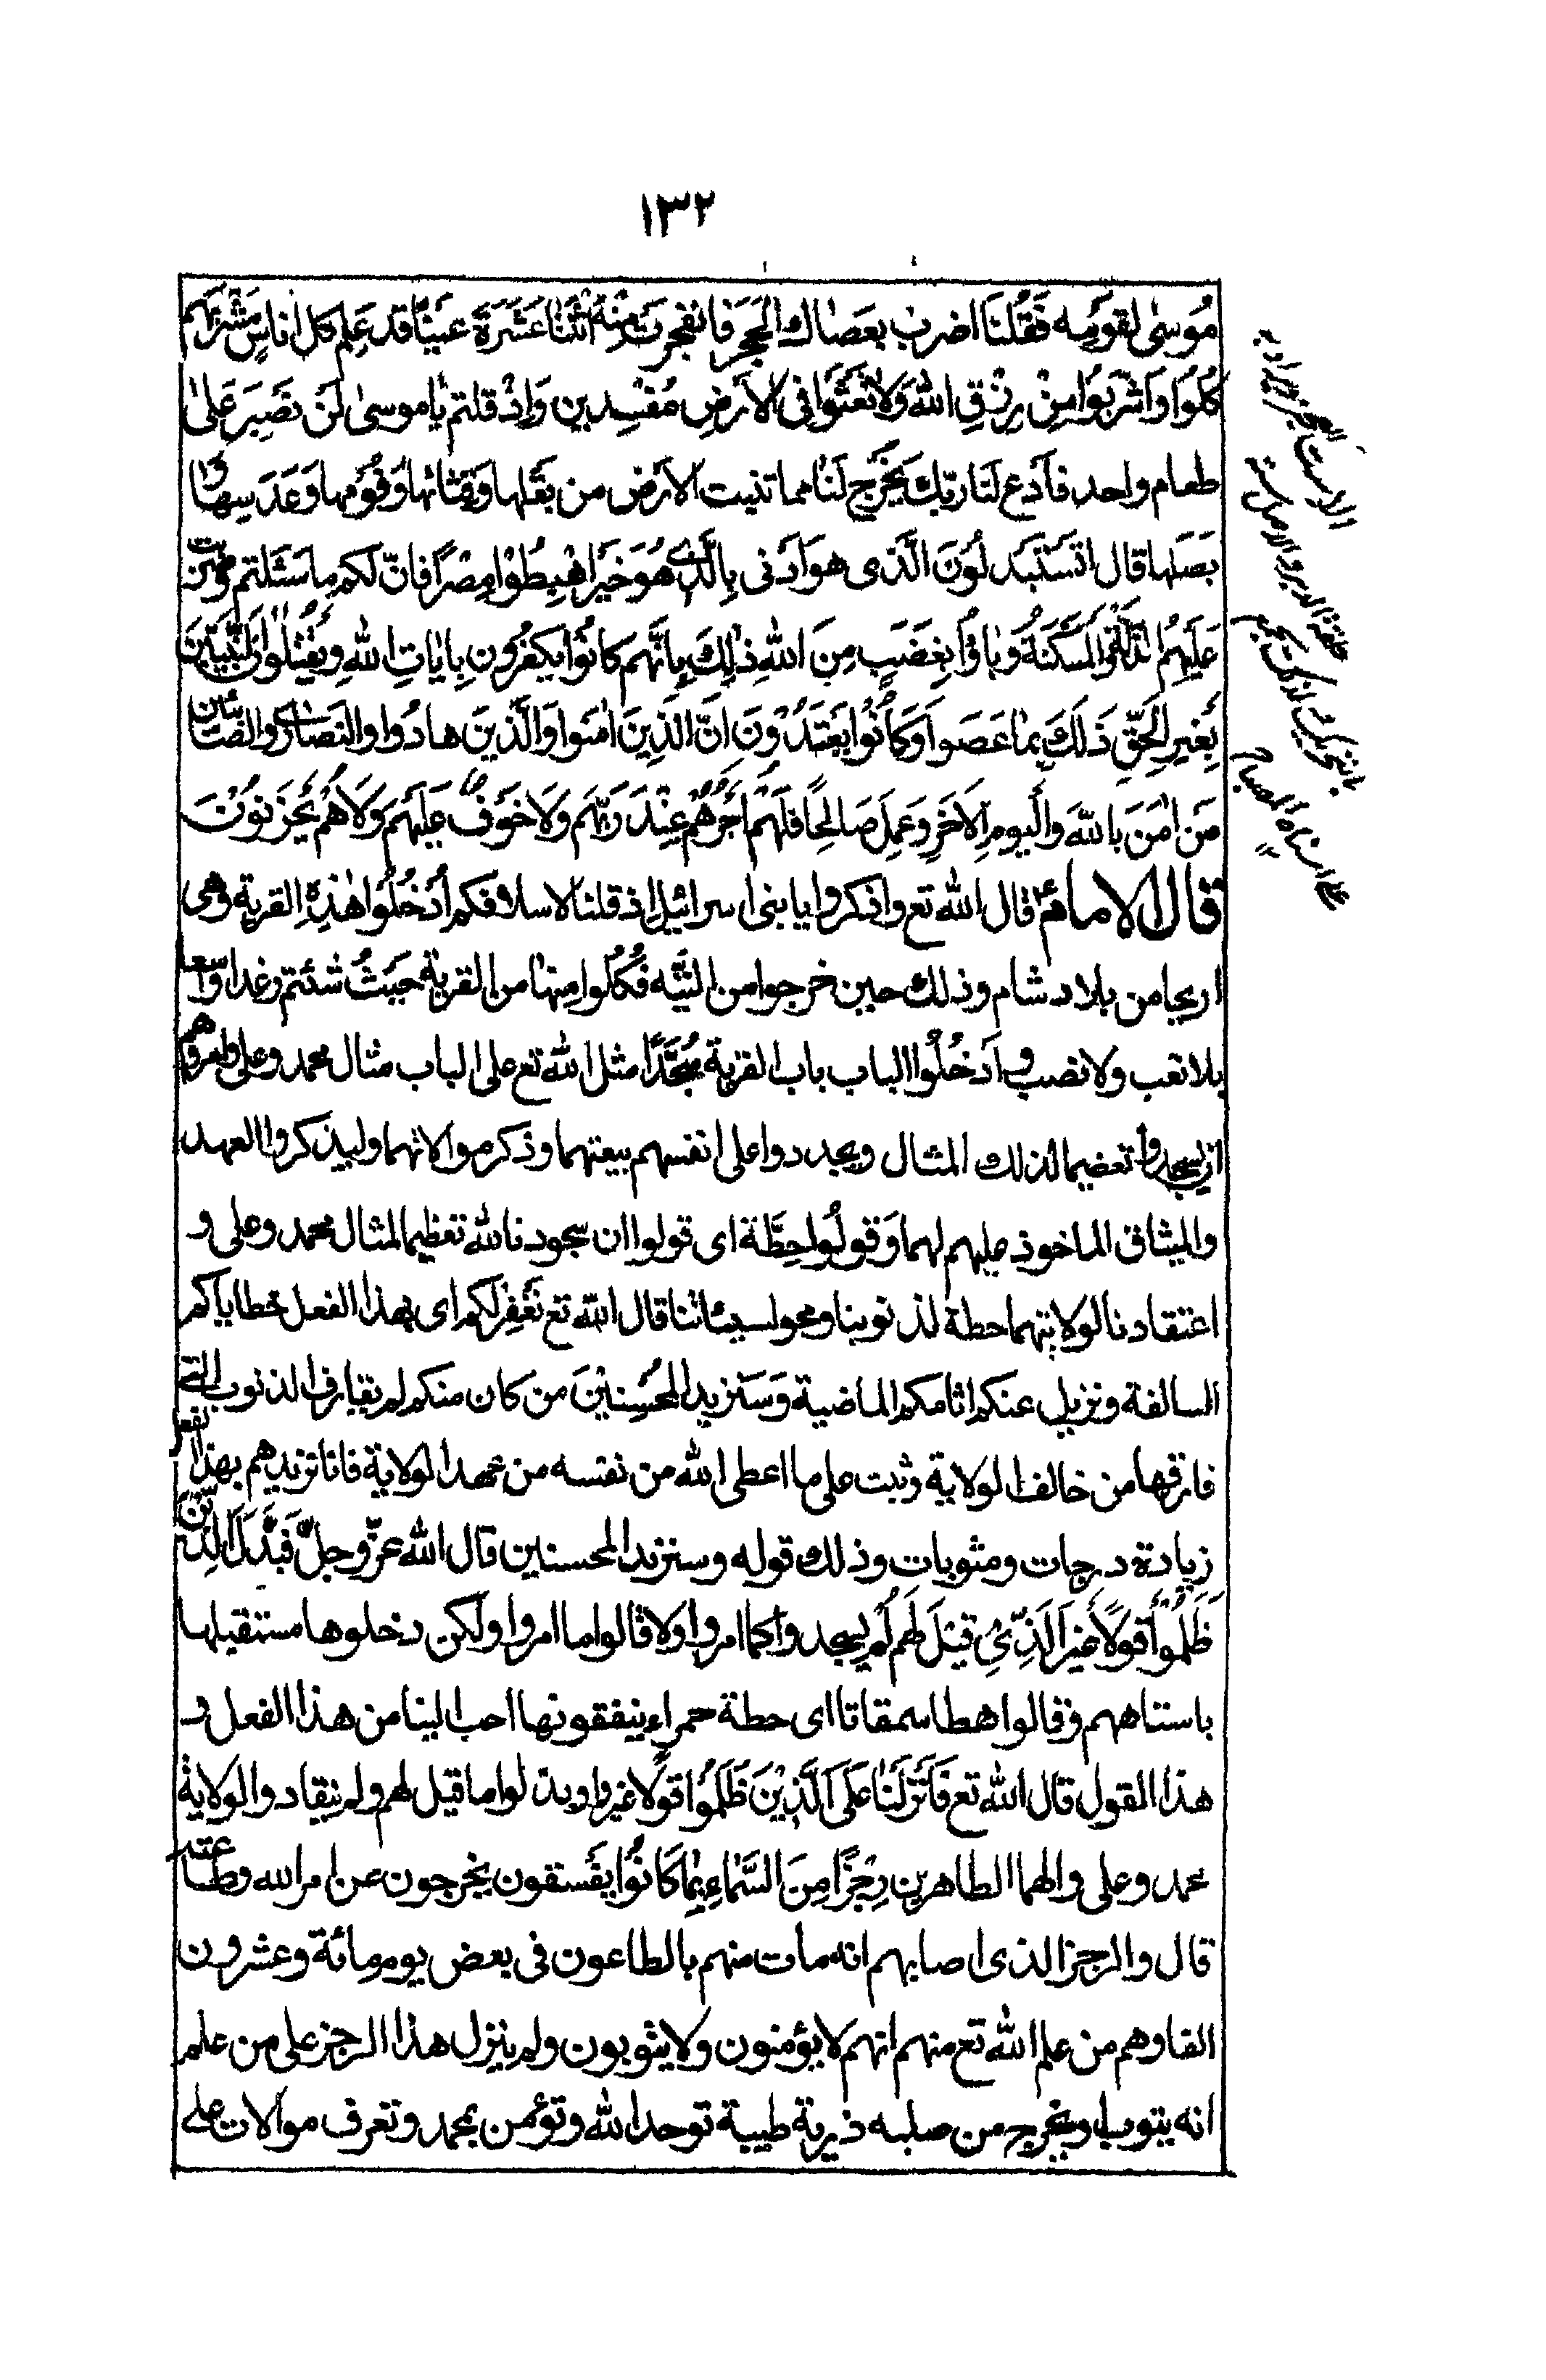 ١٣٢
مُوسىٰ لقومِه فَقُلنَا اضرب بعَصٰاك الحَجَر فانفجرت مِنْهُ اثْنَتٰا عَشْرَةَ عَيناً قد عَلِمَ كل اناسٍ مَشْرَبَهم
كُلُوا وَاشْرَبُوا مِنْ رِزْقِ اللهِ وَلا تَعْثَوْا فى الارَضِ مُفْسِدين وَاِذْ قلتم يٰا موسىٰ لَنْ نَصْبِرَ عَلىٰ
طعام واحد فَادْع لَنَا ربّك يَخْرج لَنٰا مما تنبت الارَض من بَقلها وَقِثّائها وَفُومها وَعَدَسِهٰا وَ
بَصَلها قال اتَسْتَبْدلُونَ الَّذى هو اَدَنى بِالَّذى هُوَ خَيْر اهْبِطُوْا مِصْراً فانّ لكم ما سَئَلتم وَضربت
عَلَيهِمُ الذِّلَّة وَالمَسْكَنَةُ وَباؤُا بِغَضَبٍ مِنَ اللهِ ذٰلِكَ بِاَنَّهم كانُوْا يكفرُون بِايٰاتِ اللهِ وَيَقْتُلُونَ النَّبِيّينَ
بِغَيرِ الحَقِّ ذَلكَ بمٰا عَصَوا وَكَانُوْا يَعْتَدُوْنَ اِنَّ الَّذِينَ اٰمَنوا وَالَّذينَ هادُوا والنَصٰارىٰ والصّابئين
مَن اٰمَنَ باللهَ والَيومِ الاخَرِ وَعَمِلَ صَالحِاً فلَهَُمْ اَجْرُهُمْ عِنْدَ رَبِّهَم وَلَا خَوَفٌ عَليَهَم وَلَاهُمْ يَحْزَنوُنْ
قال الامام ع قال الله تع واذكروا يا بنى اسرائيل اذ قلنا لاسلافكم اُدْخُلُوا هٰذِهِ القرية وهى
اريحا من بلاد شام وذلك حين خرجوا من التّيّه فَكُلُوا مِنهٰا من القرية حَيَثُ شئتم رغدا واسعا
بلا تعب ولا نصب وادَخُلُوا الباب باب القرية سُجَّدًا مثل الله تع على الباب مثال محمد وعلى وامرهم
ان يسجدوا تعضيما لذلك المثال ويجددوا على انفسهم بيعتهما وذكر موالاتهما وليذكروا العهد
والميثاق الماخوذ عليهم لهما وَقولُوا حِطَّة اى قولوا ان سجودنا لله تعظيما لمثال محمد وعلى و
اعتقادنا لولايتهما حطة لذنوبنا ومحو لسيئاتنا قال الله تع نَغْفِرْ لَكم اى بهذا الفعل خطاياكم
السالفة ونزيل عنكم اثامكم الماضية وَسَنزيد المُحسِنيْنَ من كان منكم لم يقارف الذنوب التى
قارفها من خالف الولاية وثبت على ما اعطى الله من نفسه من عهد الولاية فانا نزيدهم بهذا الفعل
زيادة درجات ومثوبات وذلك قوله وسنزيد المحسنين قال الله عزّ وجلّ فَبَدَّلَ الَّذينَ
ظَلَمُوا قولًا غير الَذِّىْ قيْلَ لهَم لَم يسجدوا كما امروا ولا قالوا ما امروا ولكن دخلوها مستقبلها
باستاههم وقالوا هطا سمقانا اى حطة حمراء ينفقونها احب الينا من هذا الفعل و
هذا القول قال الله تع فَاَنْزَلْنٰا عَلَى الَّذِيْنَ ظَلَمُوْا قَولًا غيروا وبدلوا ما قيل لهم ولم ينقادوا لولاية
محمد وعلى والهما الطاهرين رِجْزًا مِنَ السَّمٰاءِ بِمٰا كَانُوْا يَفَسقون يخرجون عن امر الله وطاعته
قال والرجز الذى اصابهم انه مات منهم بالطاعون فى بعض يوم مائة وعشرون
الفا وهم من علم الله تع منهم انهم لا يؤمنون ولا يتوبون ولم ينزل هذا الرجز على من علم
انه يتوب او يخرج من صلبه ذرية طيبة توحد الله وتؤمن بمحمد وتعرف موالات على
الاست العجز ويراد به
حلقة الدبر والاصل سته
بالتحريك
على استاه المصباح